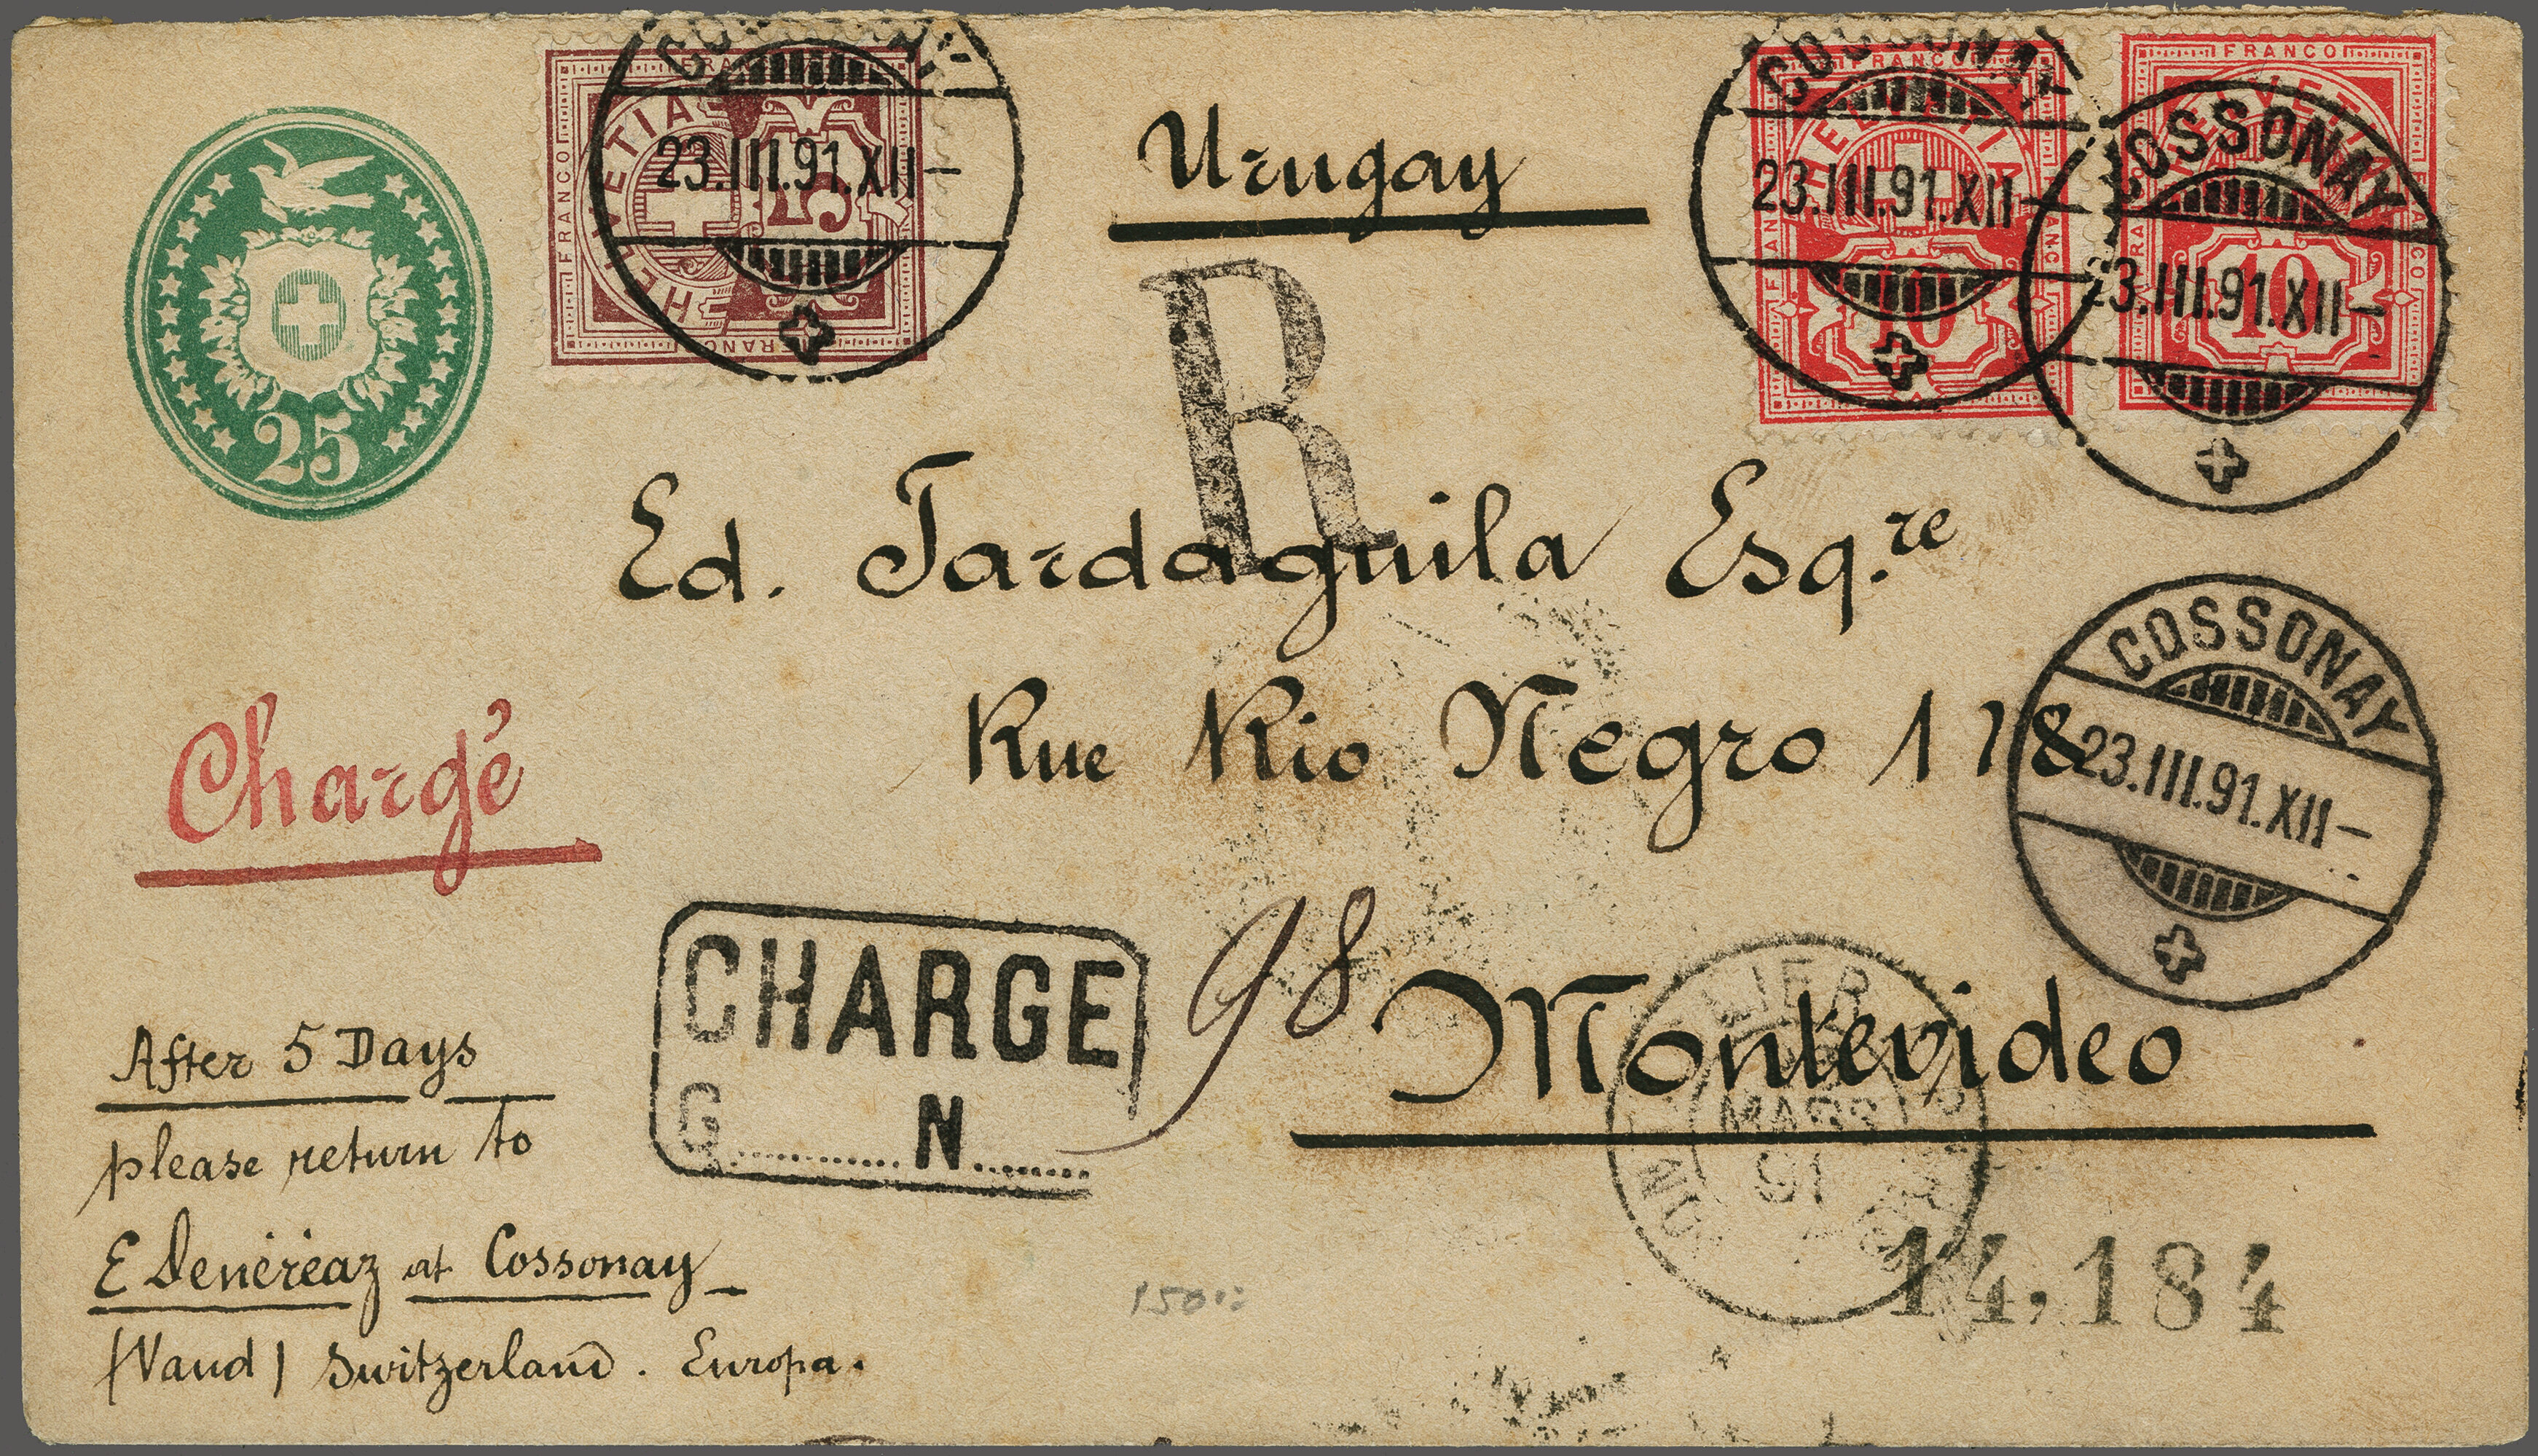 25
FRANCO
FRANCO
HELVETIA
FRANCO
23.III.91.XII-
5
Urugay
COSSONAY
FRANCO
HELVETIA
23.III.91.XII-
10
FRANCO
COSSONAY
HELVETIA
FRANCO
3.III.91.XII-
10
R
Ed. Tardaguila Esq.re
COSSONAY
23.III.91.XII-
Rue Rio Negro 118
Chargé
CHARGE
98
G.......... N........
Montevideo
MARS
91
14,184
150
After 5 Days
please return to
E Denéréaz at Cossonay
(Vaud) Switzerland. Europa.